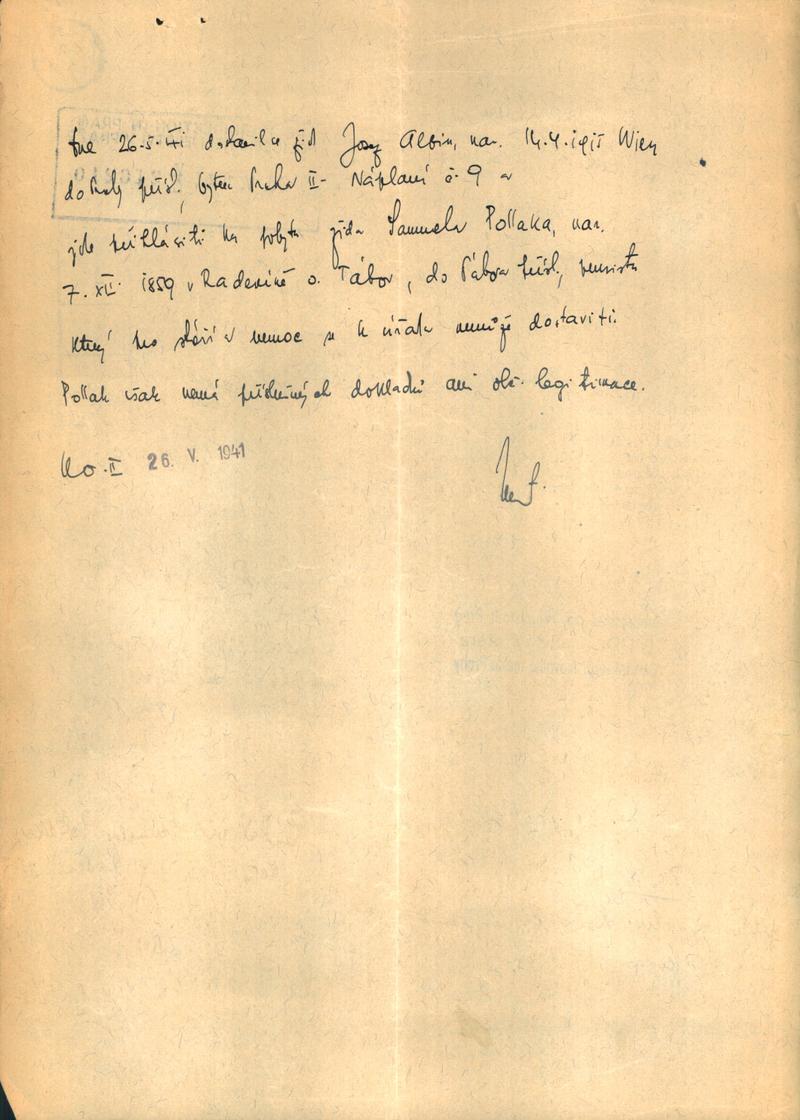 Dne 26.5.41 dostavil se žid Josef Albin, nar. 14.4.1915 Wien
do Prahy přísl., bytem Praha II- Náplavní č. 9 a
jde přihlásiti ku pobytu žida Samuela Pollaka, nar.
7. XII. 1859 v Radeníně o. Tábor, do Tábora přísl., pensista
který pro stáří a nemoc se k úřadu nemůže dostaviti.
Pollak však nemá příslušných dokladů ani obč. legitimace.
II 26. V. 1941